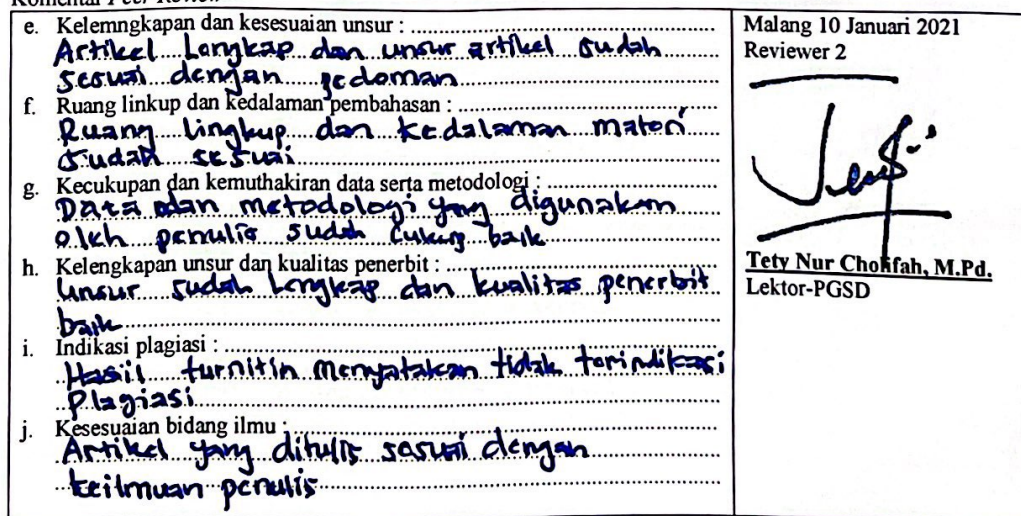 Komentar Peer Review
e. Kelemngkapan dan kesesuaian unsur :
Artikel Lengkap dan unsur artikel sudah
sesuai dengan pedoman
f. Ruang linkup dan kedalaman pembahasan :
Ruang lingkup dan kedalaman materi
sudah sesuai
g. Kecukupan dan kemuthakiran data serta metodologi :
Data dan metodologi yang digunakan
oleh penulis sudah cukup baik
h. Kelengkapan unsur dan kualitas penerbit :
Unsur sudah Lengkap dan kualitas penerbit
baik
i. Indikasi plagiasi :
Hasil turnitin menyatakan tidak terindikasi
Plagiasi
j. Kesesuaian bidang ilmu :
Artikel yang ditulis sesuai dengan
keilmuan penulis
Malang 10 Januari 2021
Reviewer 2
Tety Nur Cholifah, M.Pd.
Lektor-PGSD